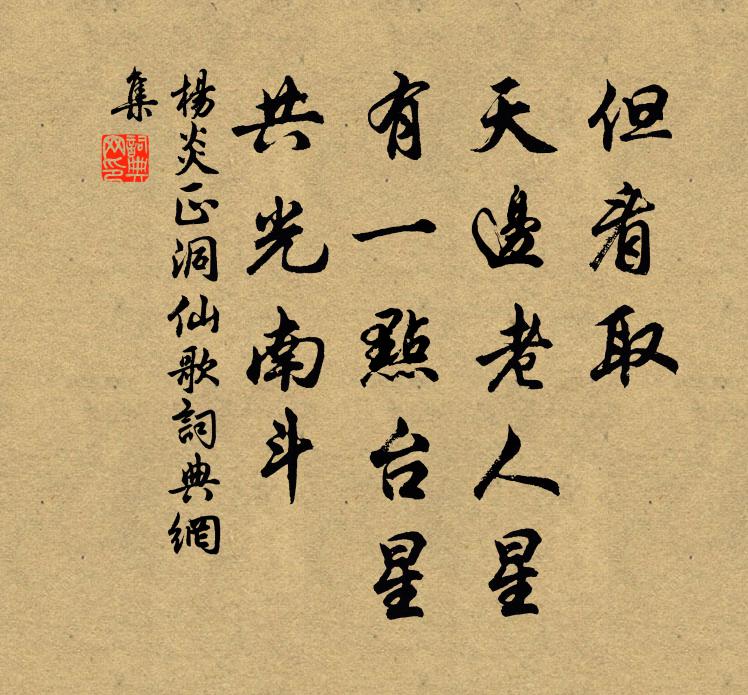 但看取
天邊老人星
有一點台星
共光南斗
楊炎正洞仙歌詞典網
集
詞典
网印